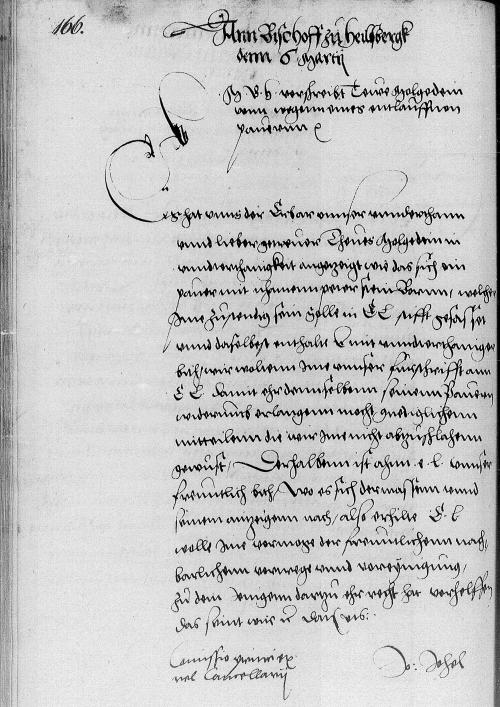 166.
Ann Bischoff zu Heilsbergk
denn 6 Martij
F. D. verschreibt Tewes Holgedein
vonn wegenn eines entlauffnen
pauernn
Es hat vnns der Erbar vnnser vnnderthann
vnnd lieber getreuer Thewes Holgedein in
vnnderthanigkeit angezeigt wie das sich ein
pauer mit nhamenn peter Stein Boran, welcher
Ime zustendig sein solle in E L stifft gesatzet
vnnd daselbest enthalt mit vnnderthaniger
bith wir woltenn Ime vnnser furschrifft ann
E L damit ehr demselbenn seinenn Pauern
widerumb erlangenn mocht gnediglichenn
mitteilenn die wir Ime nicht abzuschlahenn
gewust, Derhalbenn ist ahnn e. l. vnnser
freuntlich bith, Wo es sich dermassenn vnnd
seinem anzeigenn nach, also erhilte E. L
wolle Ime vermoge der freuntlichenn nach-
barlichenn vertrege vnnd voreynigung,
zu dem Jenigenn dartzu ehr recht hat verhelffen
das seint wir etc datum vts.
Comissio principis
vel Cancellarij